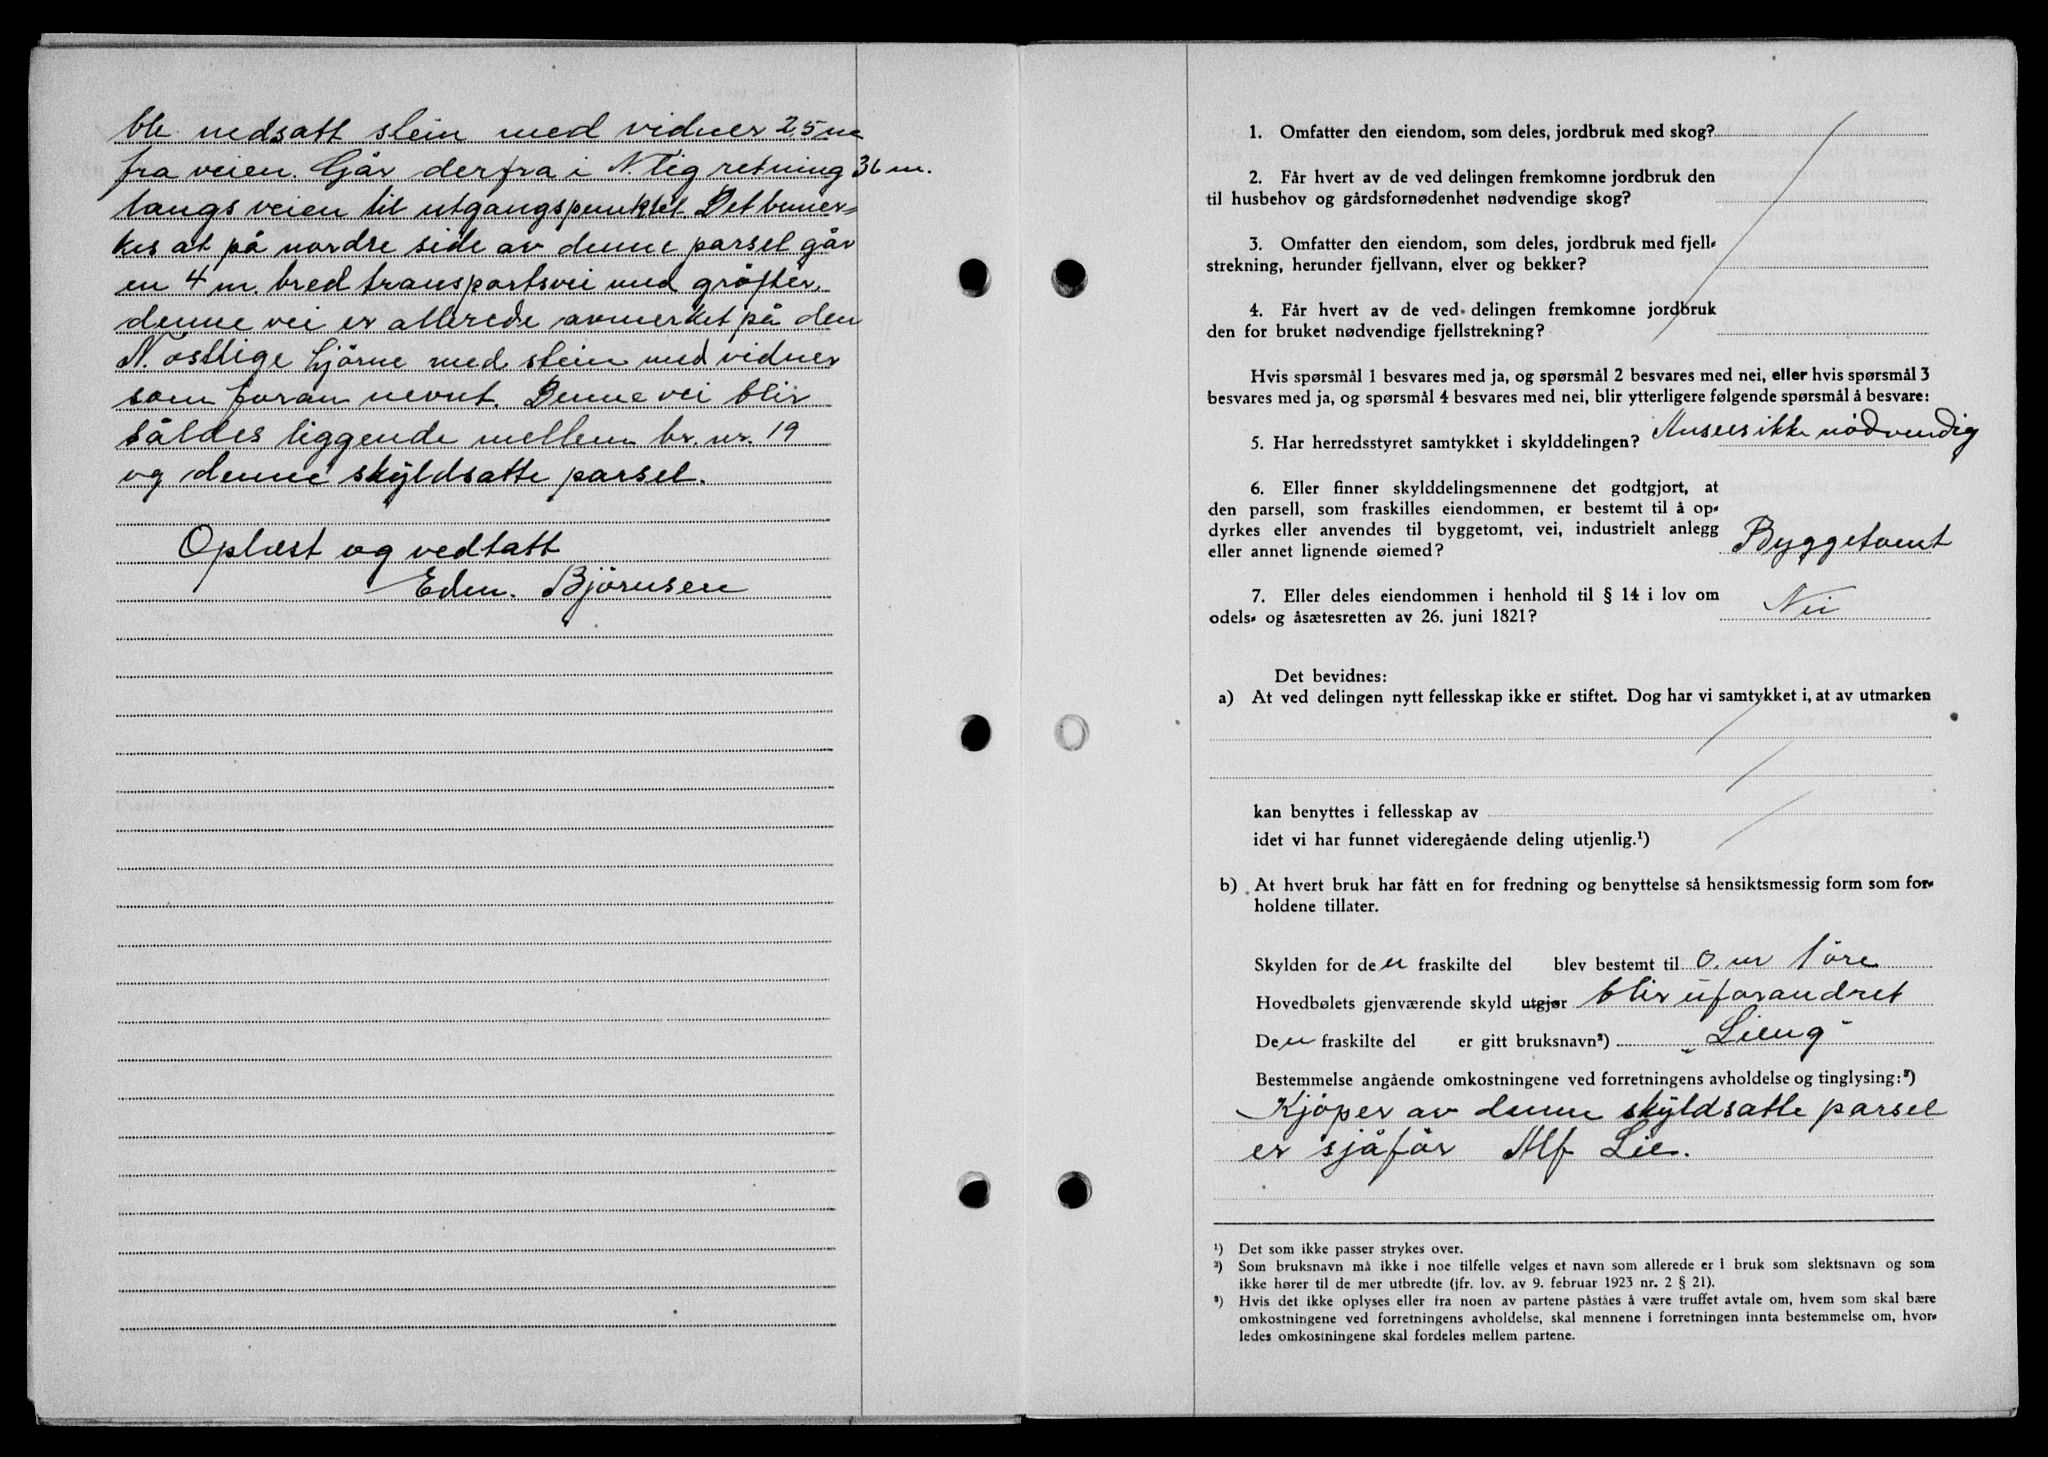 ble nedsatt stein med vidner 2.5 m
fra veien. Går derfra i N.lig retning 36 m.
langs veien til utgangspunktet. Det bemer-
kes at på nordre side av denne parsel går
en 4 m. bred transportsvei med grøfter,
denne vei er allerede avmerket på den
N. østlige hjørne med stein med vidner
som foran nevnt. Denne vei blir
således liggende mellem br. nr. 19
og denne skyldsatte parsel.
Oplest og vedtatt
Edm. Bjørnsen
1. Omfatter den eiendom, som deles, jordbruk med skog?
2. Får hvert av de ved delingen fremkomne jordbruk den
til husbehov og gårdsfornødenhet nødvendige skog?
3. Omfatter den eiendom, som deles, jordbruk med fjell-
strekning, herunder fjellvann, elver og bekker?
4. Får hvert av de ved delingen fremkomne jordbruk
den for bruket nødvendige fjellstrekning?
Hvis spørsmål 1 besvares med ja, og spørsmål 2 besvares med nei, eller hvis spørsmål 3
besvares med ja, og spørsmål 4 besvares med nei, blir ytterligere følgende spørsmål å besvare:
5. Har herredsstyret samtykket i skylddelingen? Ansees ikke nødvendig
6. Eller finner skylddelingsmennene det godtgjort, at
den parsell, som fraskilles eiendommen, er bestemt til å op-
dyrkes eller anvendes til byggetomt, vei, industrielt anlegg
eller annet lignende øiemed? Byggetomt
7. Eller deles eiendommen i henhold til § 14 i lov om
odels- og åsætesretten av 26. juni 1821? Nei
Det bevidnes:
a) At ved delingen nytt fellesskap ikke er stiftet. Dog har vi samtykket i, at av utmarken
kan benyttes i fellesskap av
idet vi har funnet videregående deling utjenlig.¹)
b) At hvert bruk har fått en for fredning og benyttelse så hensiktsmessig form som for-
holdene tillater.
Skylden for den fraskilte del blev bestemt til 0. m 1 øre
Hovedbølets gjenværende skyld utgjør blir uforandret
Den fraskilte del er gitt bruksnavn²) "Lieng"
Bestemmelse angående omkostningene ved forretningens avholdelse og tinglysing:³)
Kjøper av denne skyldsatte parsel
er sjåfør Alf Lie.
¹) Det som ikke passer strykes over.
²) Som bruksnavn må ikke i noe tilfelle velges et navn som allerede er i bruk som slektsnavn og som
ikke hører til de mer utbredte (jfr. lov. av 9. februar 1923 nr. 2 § 21).
³) Hvis det ikke oplyses eller fra noen av partene påståes å være truffet avtale om, hvem som skal bære
omkostningene ved forretningens avholdelse, skal mennene i forretningen innta bestemmelse om, hvor-
ledes omkostningene skal fordeles mellem partene.